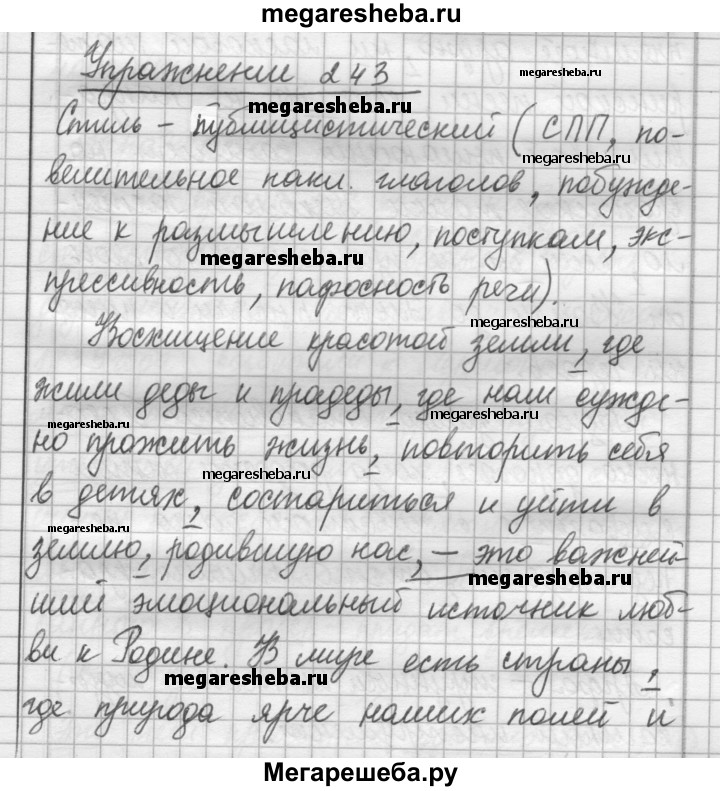 megaresheba.ru
Упражнение 243
megaresheba.ru
megaresheba.ru
Стиль – публицистический (СПП, по-
megaresheba.ru
велительное накл. глаголов, побужде-
ние к размышлению, поступкам, экс-
megaresheba.ru
прессивность, пафосность речи).
megaresheba.ru
Восхищение красотой земли, где
жили деды и прадеды, где нам сужде-
megaresheba.ru
megaresheba.ru
но прожить жизнь, повторить себя
megaresheba.ru
в детях, состариться и уйти в
megaresheba.ru
землю, родившую нас, – это важней-
megaresheba.ru
ший эмоциональный источник люб-
ви к Родине. В мире есть страны,
megaresheba.ru
megaresheba.ru
где природа ярче наших полей и
Мегарешеба.ру